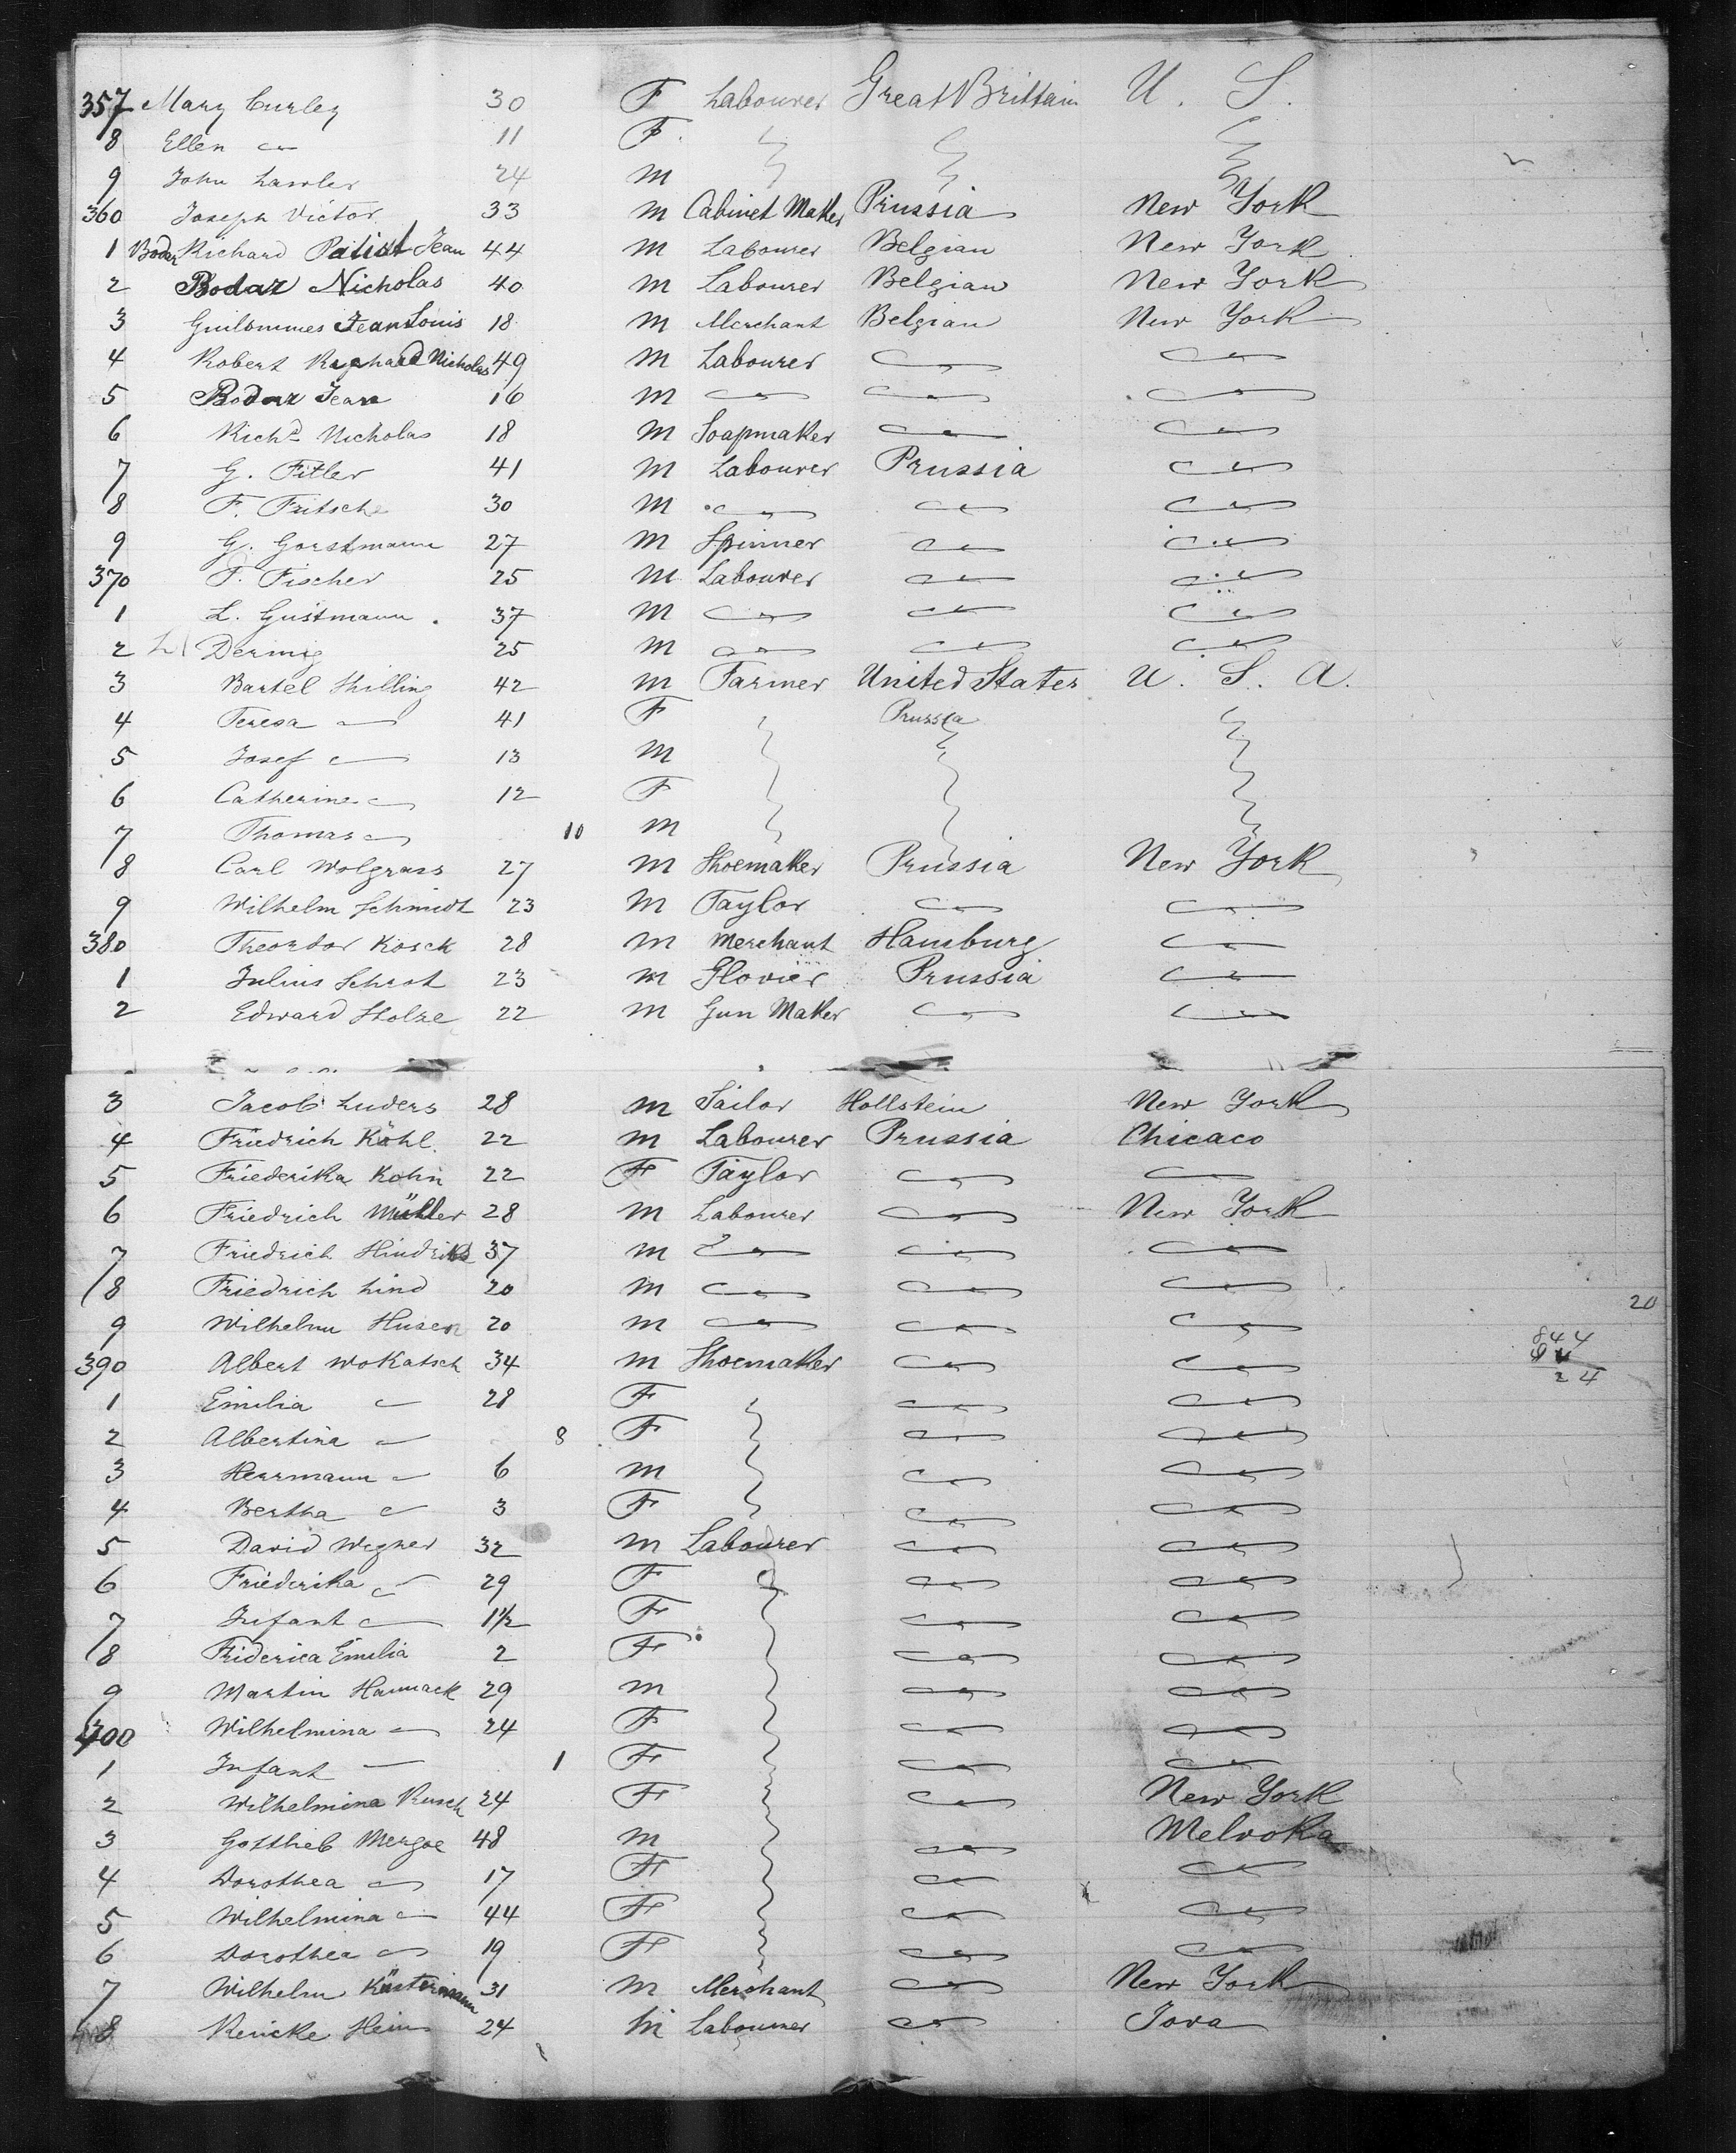 357 Mary Curley 30 F Labourer Great Brittain U. S.
8 Ellen 11 F
9 John Lawler 24 M
360 Joseph Victor 33 M Cabinet Maker Prussia New York
1 Bodar Richard Jean 44 M Labourer Belgian New York
2 Bodar Nicholas 40 M Labourer Belgian New York
3 Jean Louis 18 M Merchant Belgian New York
4 Robert Nicholas 49 M Labourer
5 Bodar Jean 16 M
6 Richd Nicholas 18 M Soapmaker
7 G. Fitler 41 M Labourer Prussia
8 F. Fritsche 30 M
9 G. Gorstmann 27 M Spinner
370 F. Fischer 25 M Labourer
1 L. Gustmann 37 M
2 25 M
3 Bartel Shilling 42 M Farmer United States U. S. A.
4 Teresa 41 F Prussia
5 Josef 13 M
6 Catherine 12 F
7 Thomas 10 M
8 Carl Wolgrass 27 M Shoemaker Prussia New York
9 Wilhelm Schmidt 23 M Taylor
380 Theordor Kosck 28 M Merchant Hamburg
1 Julius Schrot 23 M Glovier Prussia
2 Edward Stolze 22 M Gun Maker
3 Jacob Luders 28 M Tailor Hollstein New York
4 Friedrich Köhl 22 M Labourer Prussia Chicaco
5 Friederika Kohn 22 F Taylor
6 Friedrich Mühler 28 M Labourer New York
7 Friedrich 37 M
8 Friedrich Lind 20 M
20
9 Wilhelm Husen 20 M
844
390 Albert Wokatsch 34 M Shoemaker
24
1 Emilia 28 F
2 Albertina 8 F
3 Herrmann 6 M
4 Bertha 3 F
5 David Wegner 32 M Labourer
6 Friederika 29 F
7 Infant 1½ F
8 Friderica Emilia 2 F
9 Martin Hannack 29 M
400 Wilhelmina 24 F
1 Infant 1 F
2 Wilhelmina Rusch 24 F New York
3 Gottlieb Mergoe 48 M Melvoka
4 Dorothea 17 F
5 Wilhelmina 44 F
6 Dorothea 19 F
7 Wilhelm Küstermann 31 M Merchant New York
8 Reincke Hein 24 M Labourer Jova